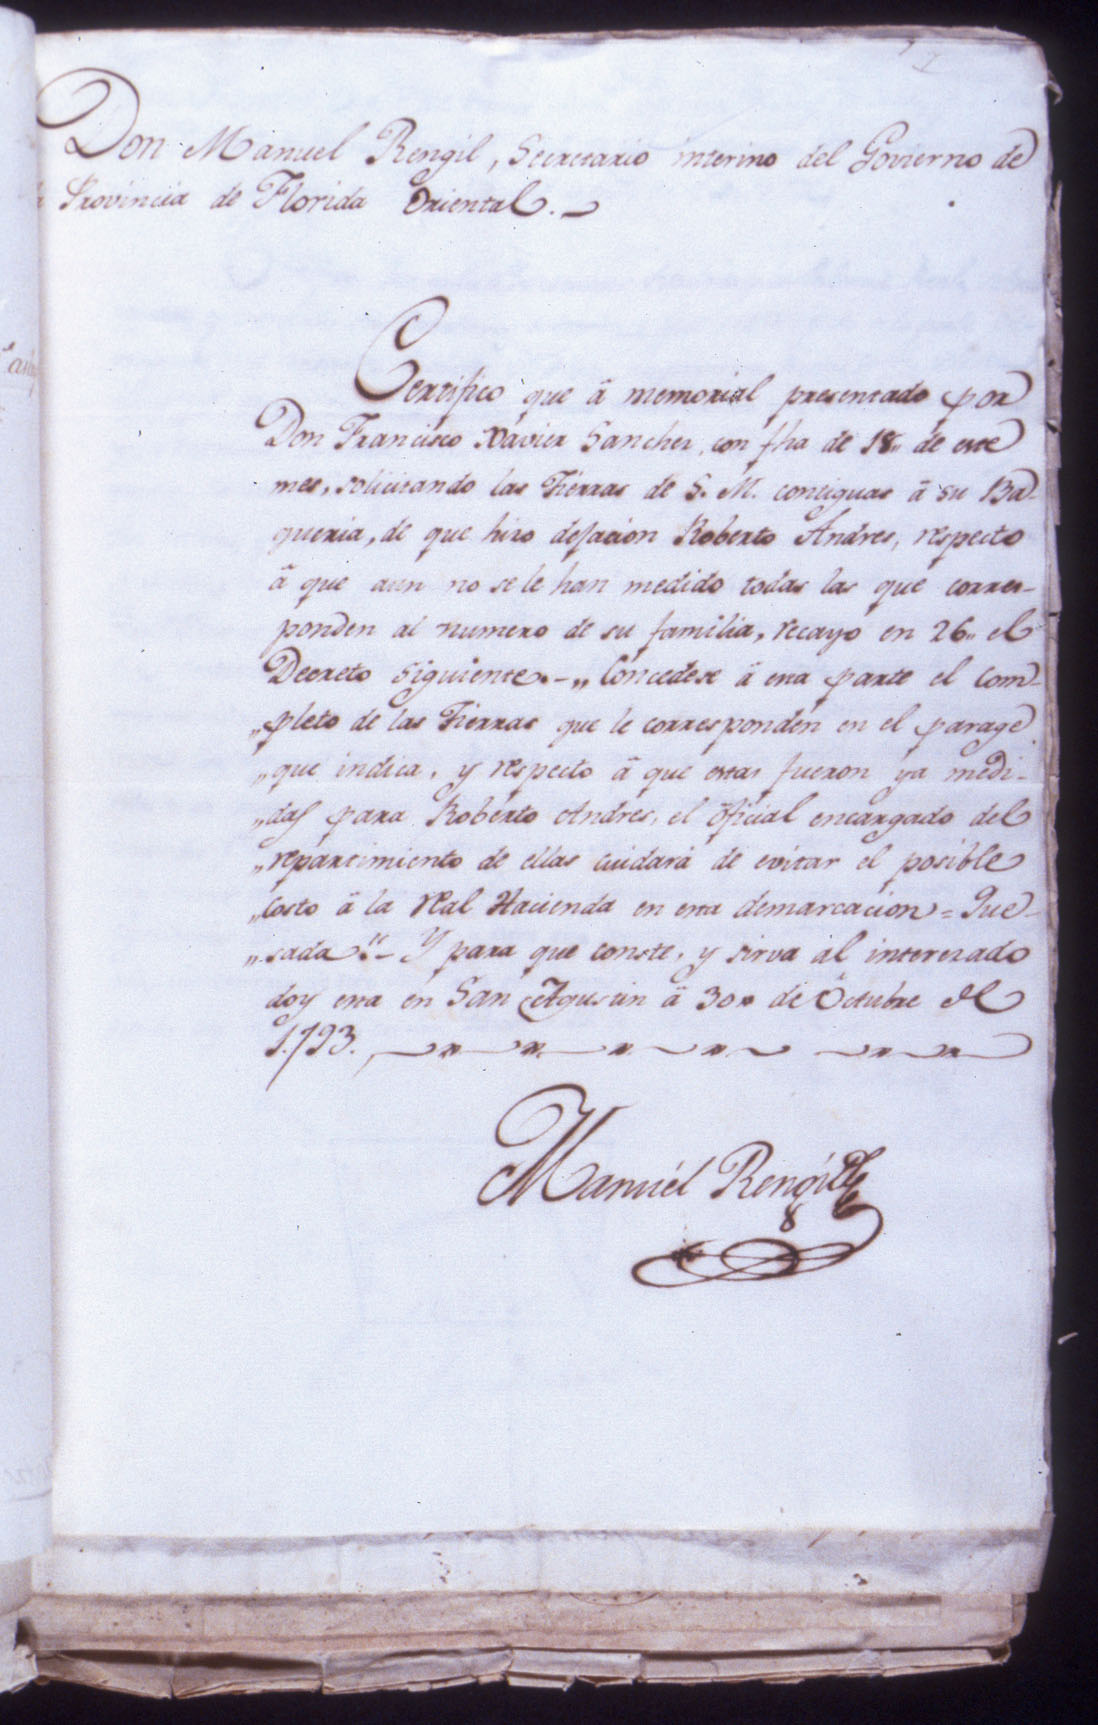 Don Manuel Rengil, Secretario interino del Govierno de
Provincia de Florida Oriental.
Certifico que â memorial presentado por
Don Francisco Xavier Sanchez, con fha de 18,, de este
mes, solicitando las Tierras de S. M. contiguas â su Ba-
queria, de que hizo dejacion Roberto Andres, respecto
â que aun no se le han medido todas las que corres-
ponden al numero de su familia, recayo en 26,, el
Decreto siguiente.-,, Concedese â esta parte el com-
,,pleto de las Tierras que le corresponden en el parage
,,que indica, y respecto â que estas fueron ya medi-
,,das para Roberto Andres, el Oficial encargado del
,,repartimiento de ellas cuidará de evitar el posible
,,costo â la Real Hacienda en esta demarcacion = Que-
,,sada"- Y para que conste, y sirva al interezado
doy esta en San Agustin â 30,, de Octubre de
1.793.
Manuél Rengil